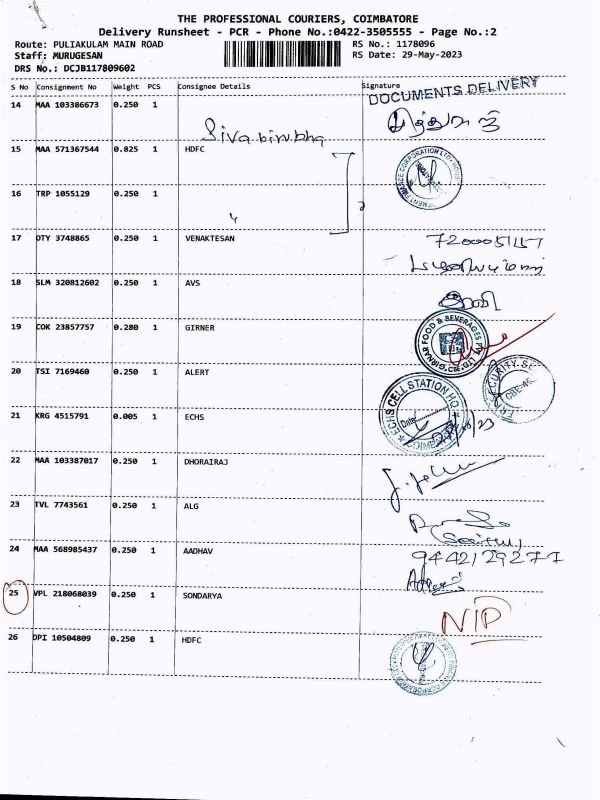 THE PROFESSIONAL COURIERS, COIMBATORE
Delivery Runsheet - PCR - Phone No.:0422-3505555 - Page No.:2
Route: PULIAKULAM MAIN ROAD RS No.: 1178096
Staff: MURUGESAN RS Date: 29-May-2023
DRS No.: DCJB117809602
S No Consignment No Weight PCS Consignee Details Signature
DOCUMENTS DELIVERY
14 MAA 103386673 0.250 1
15 MAA 571367544 0.825 1 HDFC
16 TRP 1055129 0.250 1
17 OTY 3748865 0.250 1 VENAKTESAN
18 SLM 320812602 0.250 1 AVS
19 COK 23857757 0.280 1 GIRNER
GIRNAR FOOD & BEVERAGES PVT
20 TSI 7169460 0.250 1 ALERT
21 KRG 4515791 0.005 1 ECHS
ECHS CELL STATION HQ
Date:
22 MAA 103387017 0.250 1 DHORAIRAJ
23 TVL 7743561 0.250 1 ALG
24 MAA 568985437 0.250 1 AADHAV
9442129277
25 VPL 218068039 0.250 1 SONDARYA
NIP
26 DPI 10504809 0.250 1 HDFC